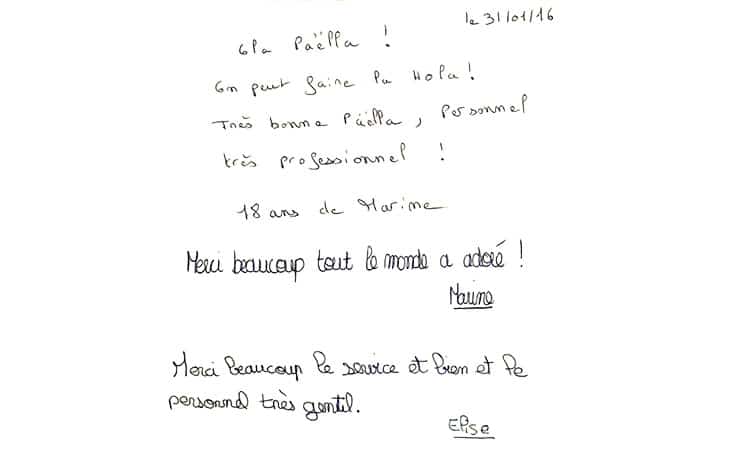 le 31/01/16
Ola Paëlla !
On peut faire la Hola !
Très bonne Päella, Personnel
très professionnel !
18 ans de Marine
Merci beaucoup tout le monde a adoré !
Marine
Merci beaucoup le service et bien et le
personnel très gentil.
Elise